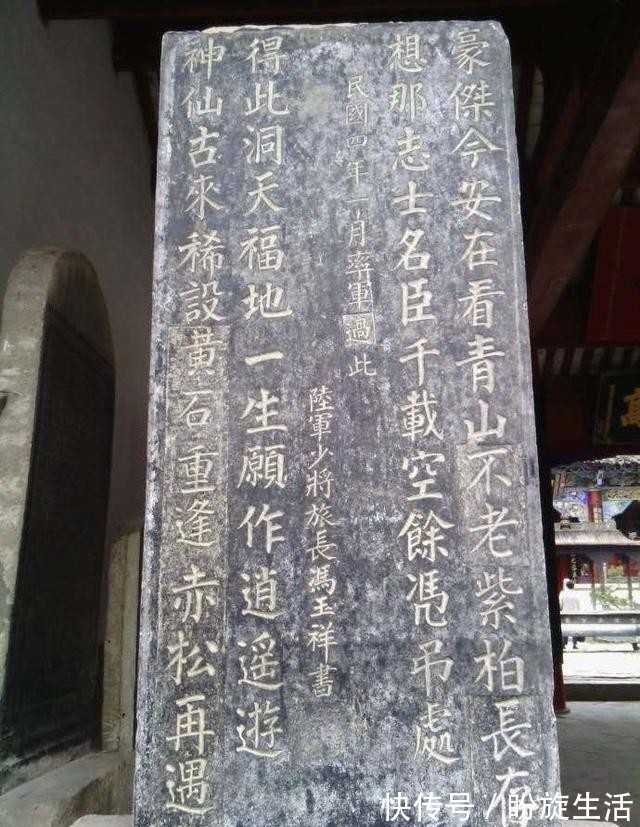 豪傑今安在看青山不老紫柏長存
想那志士名臣千載空餘憑吊處
民國四年一月率軍過此
陸軍少將旅長馮玉祥書
得此洞天福地一生願作逍遥遊
神仙古來稀設黄石重逢赤松再遇
快传号／盼旋生活